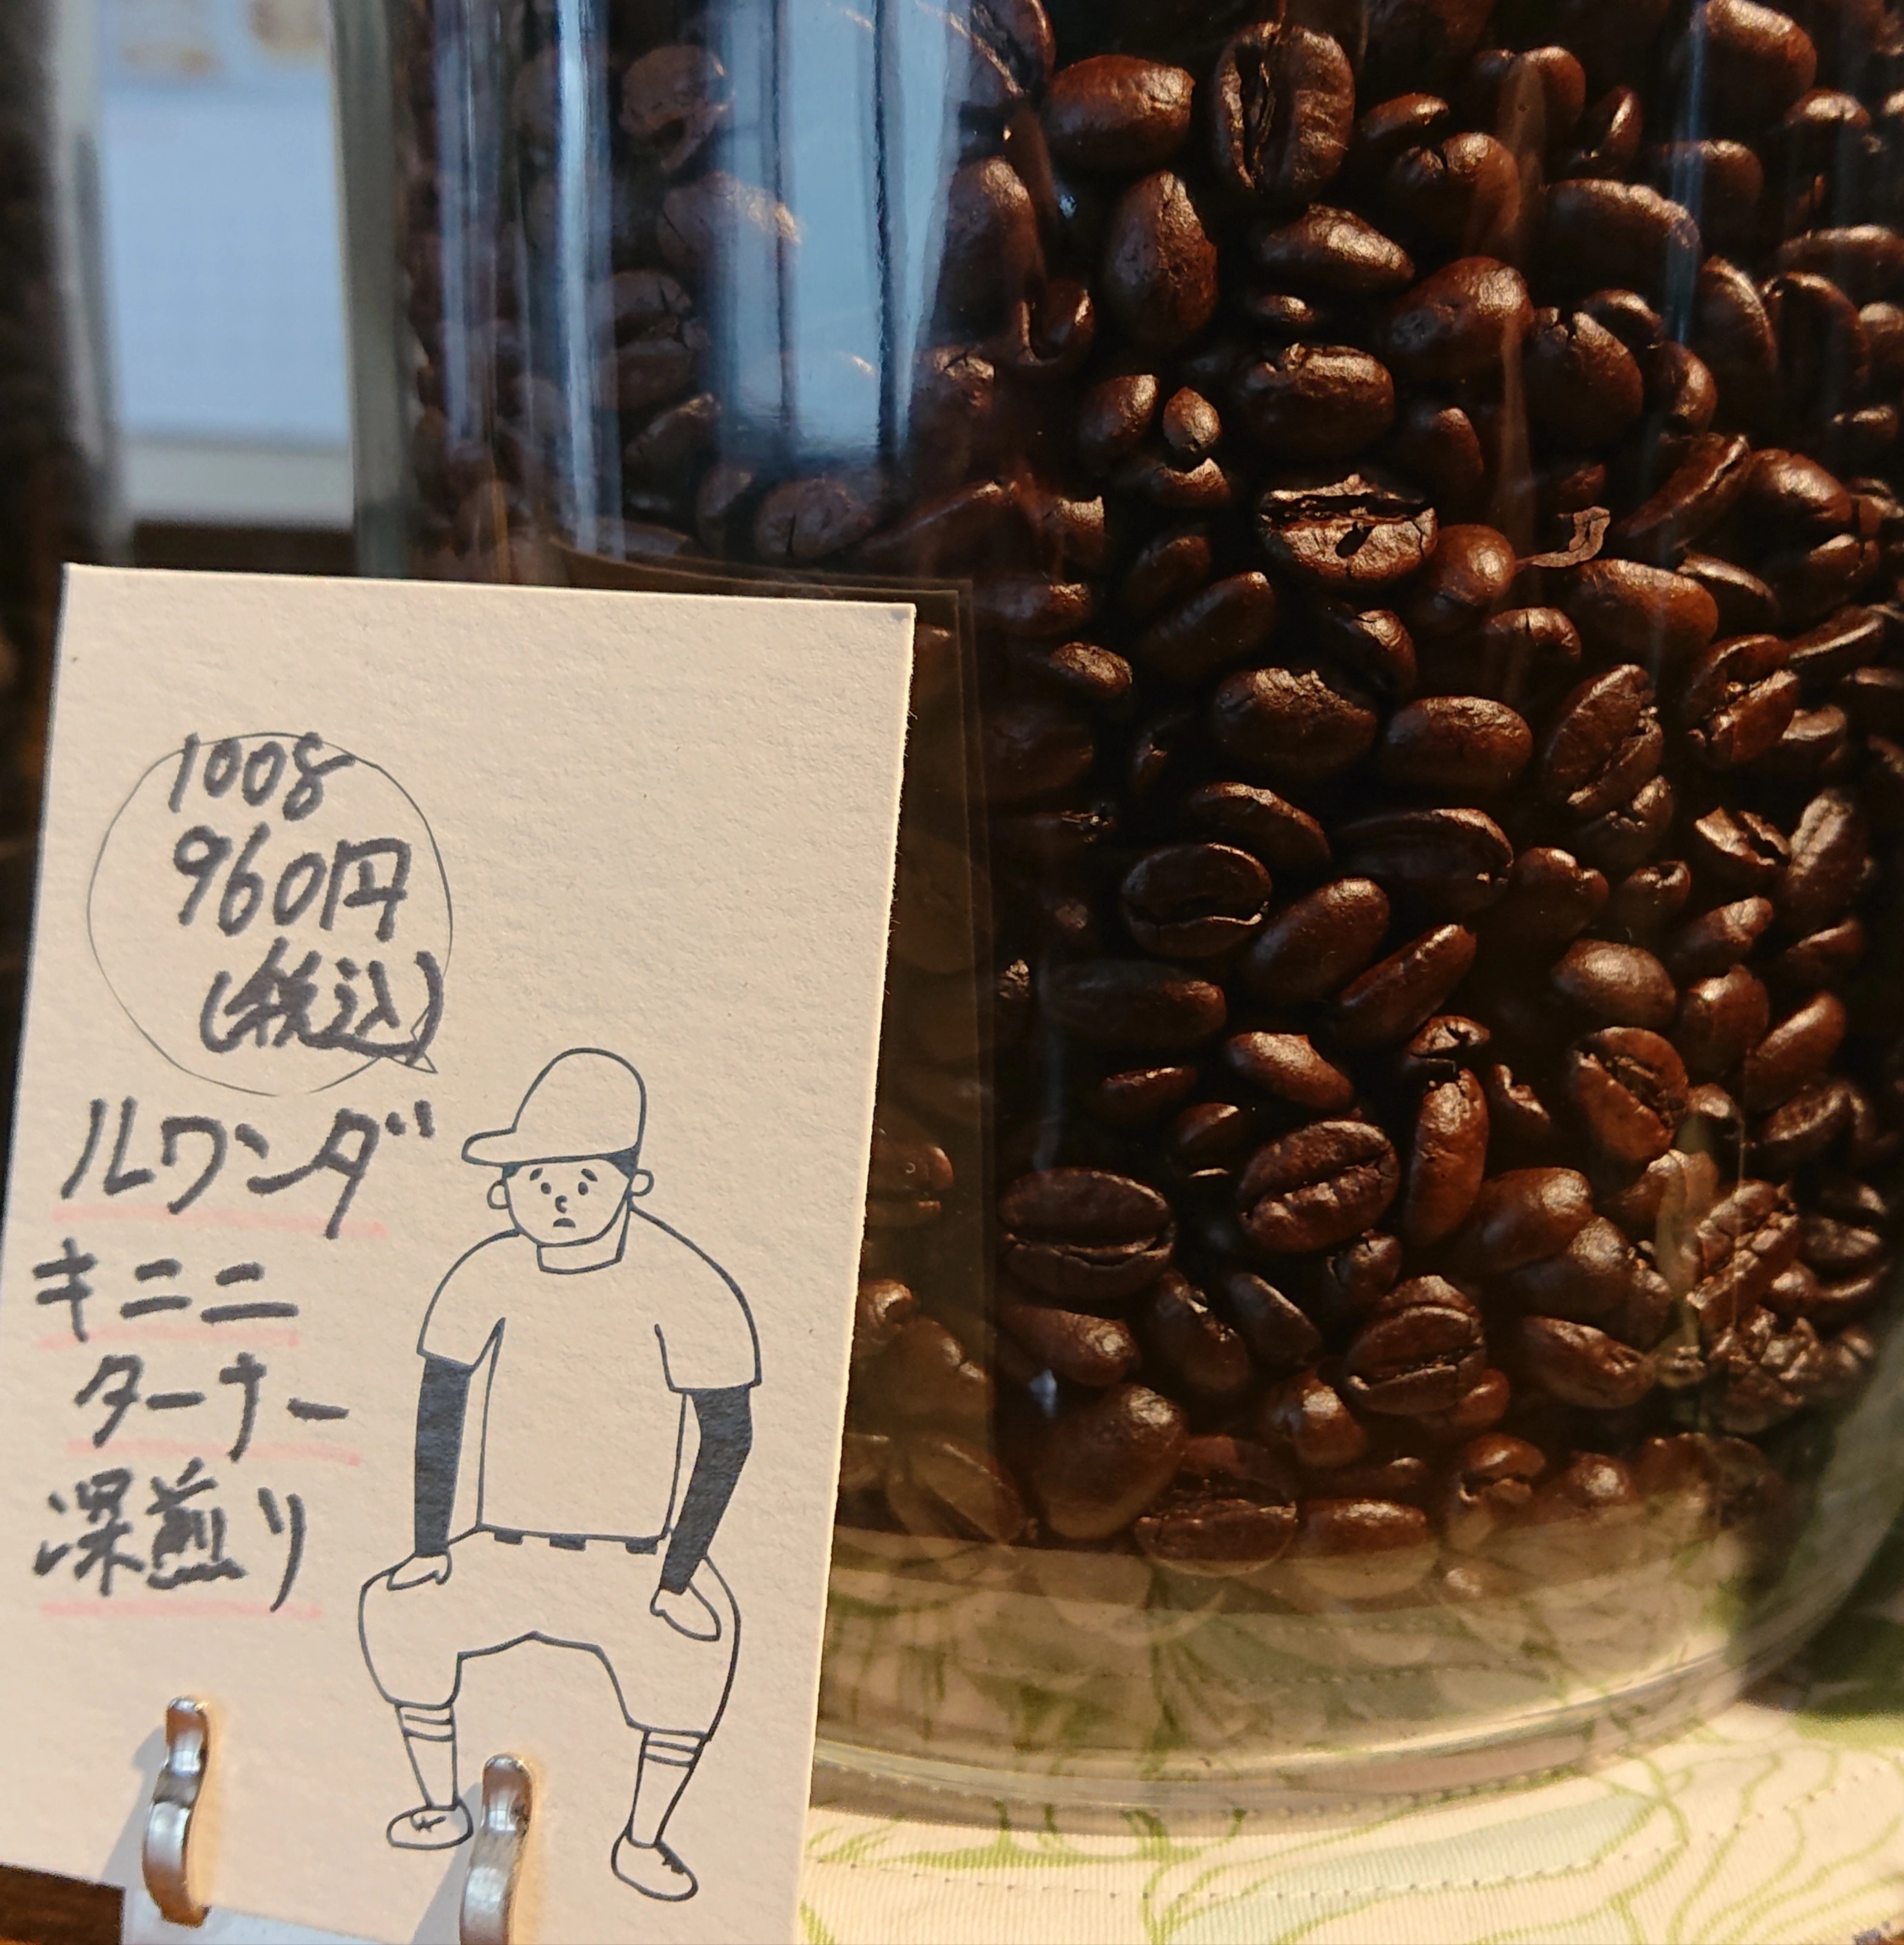 100g
960円
(税込)
ルワンダ
キニニ
ターナー
深煎り